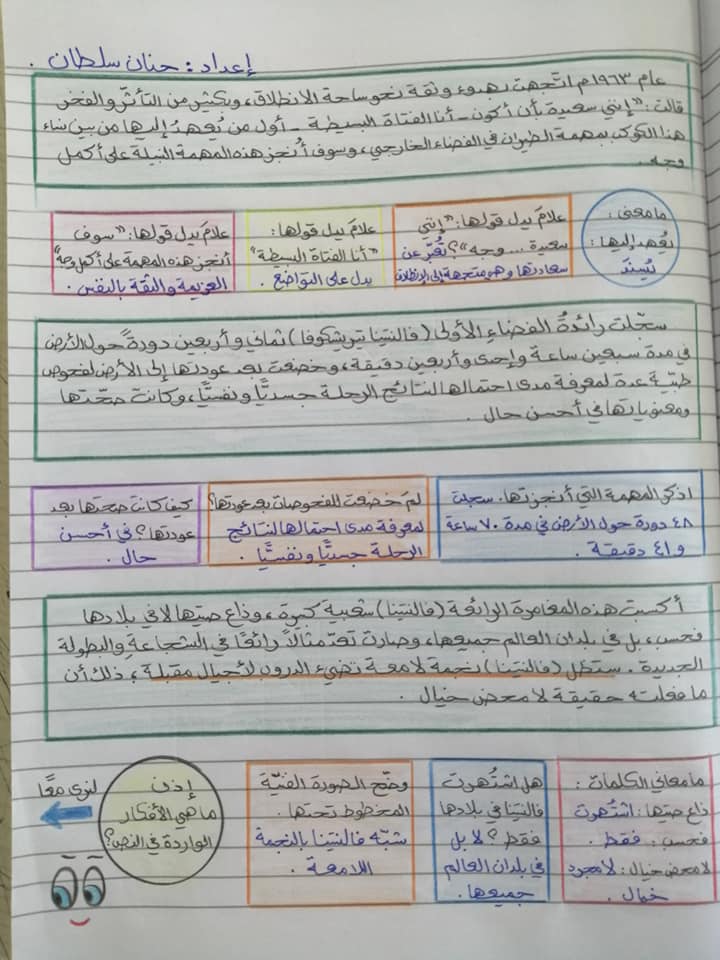 إعداد: حنان سلطان.
عام ١٩٦٣م اتّجهت بهدوء وثقة نحو ساحة الانطلاق، وبكثير من التأثّر والفخر
قالت: "إنني سعيدة بأن أكون - أنا الفتاة البسيطة - أول من يُعهدُ إليها من بين بناء
هذا الكوكب بمهمة الطيران في الفضاء الخارجي، وسوف أُنجز هذه المهمة النبيلة على أكمل
وجه.
ما معنى:
يُعهد إليها:
يُسند
علامَ يدل قولها: "إنني
سعيدة .... وجه"؟ تُعبّر عن
سعادتها وهي متجهة إلى الانطلاق
علامَ يدل قولها:
"أنا الفتاة البسيطة"
يدل على التواضع.
علامَ يدل قولها: "سوف
أنجز هذه المهمة على أكمل وجه"
العزيمة والثقة بالنفس.
سجّلت رائدةُ الفضاء الأولى (فالنتينا تيريشكوفا) ثماني وأربعين دورةً حول الأرض
في مدة سبعين ساعة وإحدى وأربعين دقيقة، وخضعت بعد عودتها إلى الأرض لفحوص
طبيّة عدة لمعرفة مدى احتمالها لنتائج الرحلة جسديًّا ونفسيًّا، وكانت صحّتها
ومعنوياتها في أحسن حال.
اذكر المهمة التي أنجزتها. سجلت
٤٨ دورة حول الأرض في مدة ٧٠ ساعة
و٤١ دقيقة.
لمَ خضعت للفحوصات بعد عودتها؟
لمعرفة مدى احتمالها لنتائج
الرحلة جسديًّا ونفسيًّا.
كيف كانت صحتها بعد
عودتها؟ في أحسن
حال.
أكسبت هذه المغامرة الرائعة (فالنتينا) شعبية كبيرة، وذاع صيتها لا في بلادها
فحسب، بل في بلدان العالم جميعها، وصارت تعدّ مثالاً رائعًا في الشجاعة والبطولة
الجديرة. ستظل (فالنتينا) نجمة لامعة تضيء الدرب لأجيال مقبلة، ذلك أن
ما فعلته حقيقة لا محض خيال.
ما معاني الكلمات:
ذاع صيتها: اشتُهرت
فحسب: فقط.
لا محض خيال: لا مجرد
خيال.
هل اشتُهرت
فالنتينا في بلادها
فقط؟ لا بل
في بلدان العالم
جميعها.
وضّح الصورة الفنيّة
المخطوط تحتها.
شبّه فالنتينا بالنجمة
اللامعة.
إذن
ما هي الأفكار
الواردة في النص؟
لنرى معًا